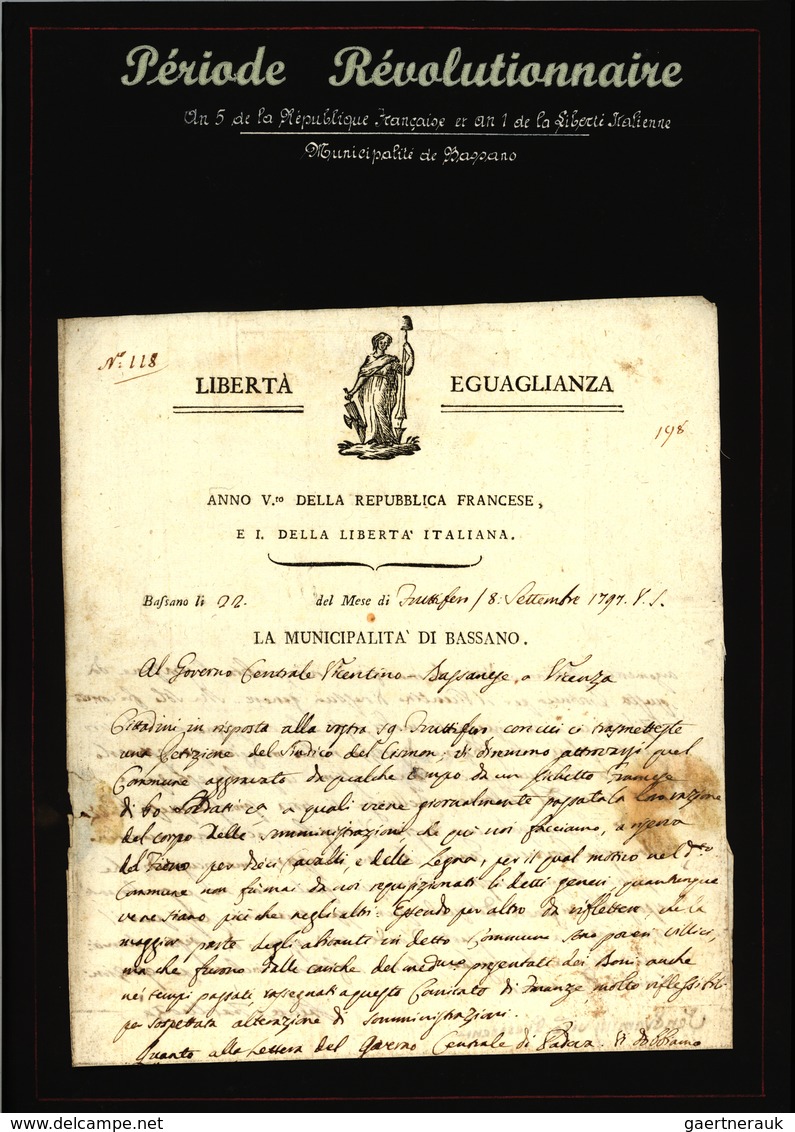 Période Révolutionnaire
An 5 de la République Française et an 1 de la Liberté Italienne
Municipalité de Bassano
N.º 118
LIBERTÀ EGUAGLIANZA
198
ANNO V.to DELLA REPUBBLICA FRANCESE,
E I. DELLA LIBERTA' ITALIANA.
Bassano li 22. del Mese di Fruttifero / 8: Settembre 1797. V. S.
LA MUNICIPALITA' DI BASSANO.
Al Governo Centrale Vicentino-Bassanese a Vicenza
Cittadini in risposta alla vostra 19. Fruttifero con cui ci trasmetteste
una Petizione del Sindico del Cismon, vi diremmo attrovarsi quel
Commune aggravato da qualche tempo da un Francese
di 60 Soldati ca a quali viene giornalmente passata la razione
del corpo delle somministrazioni che qui noi facciamo, a
del Fieno per dieci Cavalli, e delle Legna, per il qual motivo nel d.to
Commune non furono mai da noi requisizionati li detti generi, quantunque
ve ne siano più che negli altri. Essendo per altro da riflettere, che la
maggior parte degli abitanti in detto Commune sono poveri villici,
ma che furono dalle cariche del med.mo presentati dei Boni anche
nei tempi passati rassegnati a questo Comitato di Finanze, molto riflessibili
per sospettata alterazione di somministrazioni.
Quanto alla Lettera del Governo Centrale di Padova vi dobbiamo
delcampe.net gaertnerauk